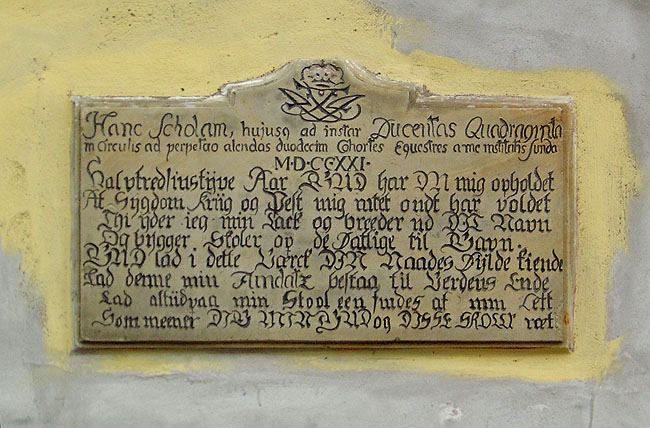 Hanc Scholam, hujusq ad instar Ducentas Quadraginta
in circulis ad perpetuo alendas duodecim Cohortes Equestres a me institutis funda
M·D·CCXXI·
Halvtredsinstyve Aar GUD har DU mig opholdet
At Sygdom Krig og Pest mig intet ondt har voldet
Thi yder ieg min Tack og breeder ud DIT Navn
Og bygger Skoler op de Fattige til Gavn.
GUD lad i dette Værck DIN Naades Fylde kiende
Lad denne min Fundatz bestaa til Verdens Ende
Lad altiid paa min Stool een findes af min Æt
Som meener DIG MIN GUD og DISSE SKOLER ræt